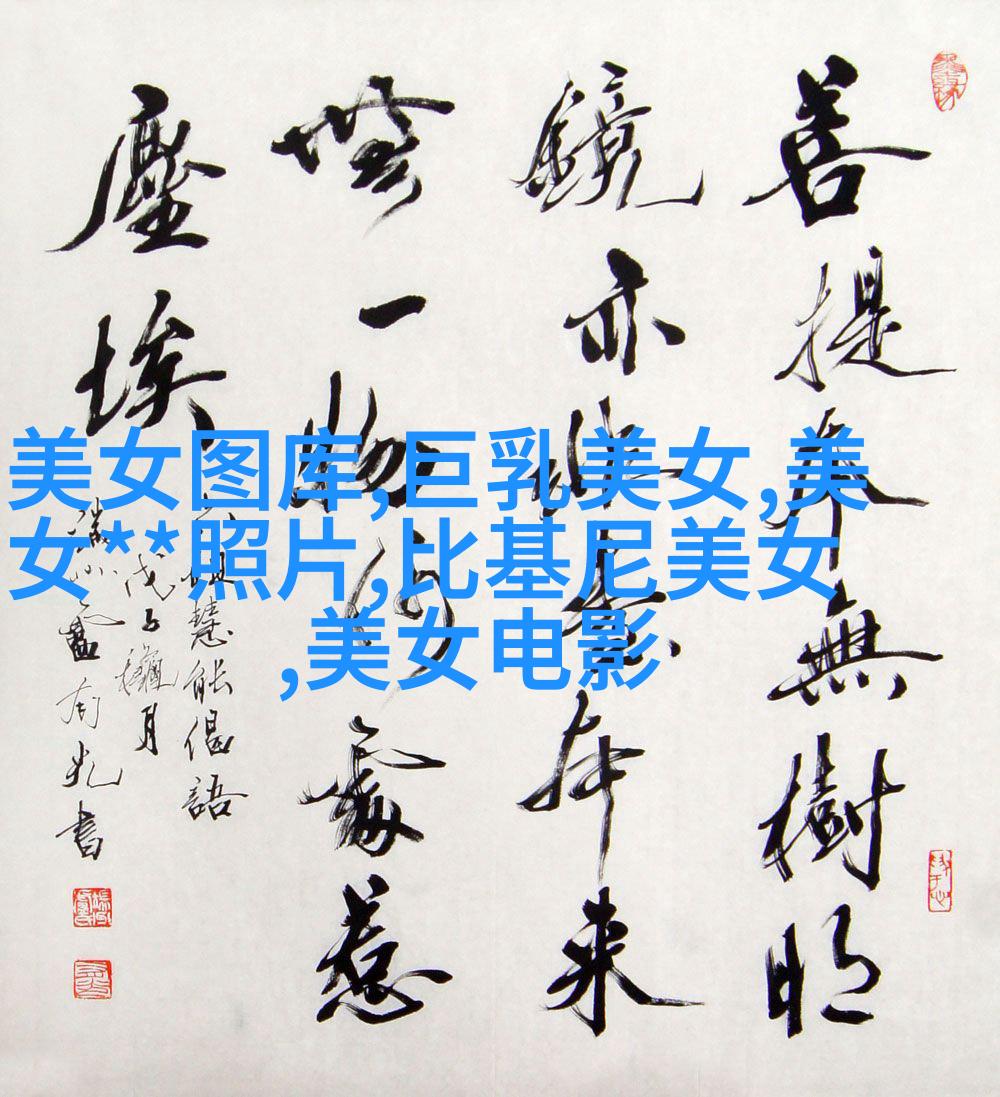 菩提本無樹明
鏡亦非臺本来
無一物何處惹
塵埃
慧能偈語
戊子穐月
書
美女图库,巨乳美女,美
女**照片,比基尼美女
,美女电影